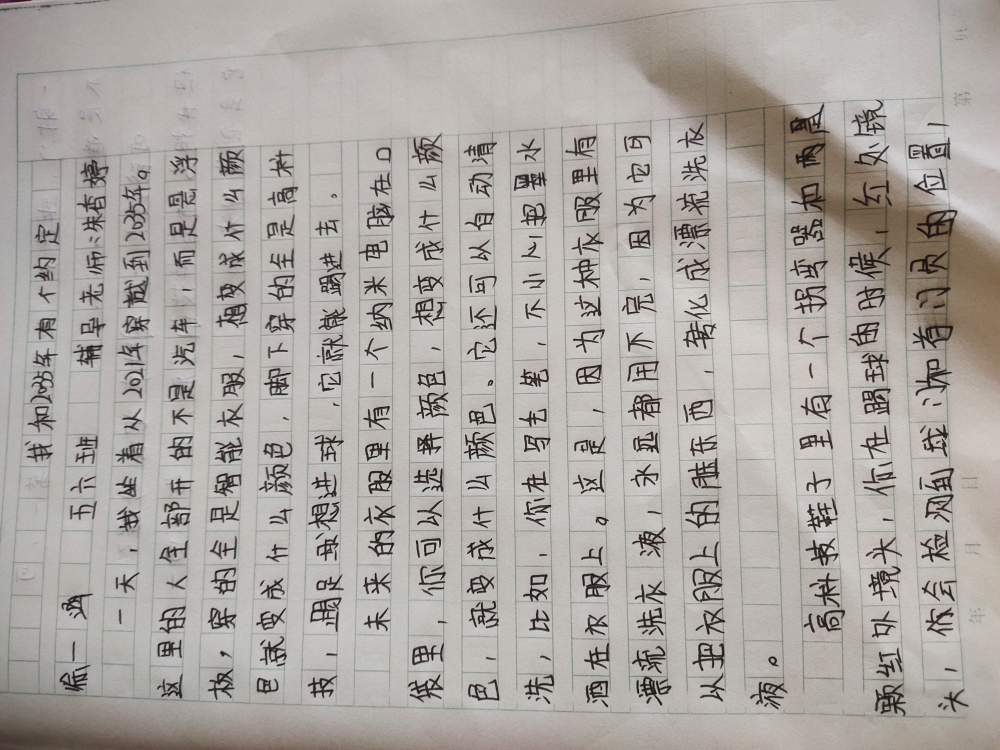 我和2035年有个约定
喻一涵 五六班 辅导老师:朱杏婷
一天，我坐着从2021年穿越到2035年。
这里的人全部开的不是汽车，而是悬浮
板，穿的全是智能衣服，想变成什么颜
色就变成什么颜色，脚下穿的全是高科
技，踢足球想进球，它就能踢进去。
未来的衣服里有一个纳米电脑在口
袋里，你可以选择颜色，想变成什么颜
色，就变成什么颜色。它还可以自动清
洗，比如，你在写毛笔，不小心把墨水
洒在衣服上。这是，因为这种衣服里有
漂流洗衣液，永远都用不完，因为它可
以把衣服上的脏东西，转化成漂流洗衣
液。
高科技鞋子里有一个拐弯器和两显
颗红外境头，你在踢球的时候，红外镜
头，你会检测到球沙和着门员的位置，